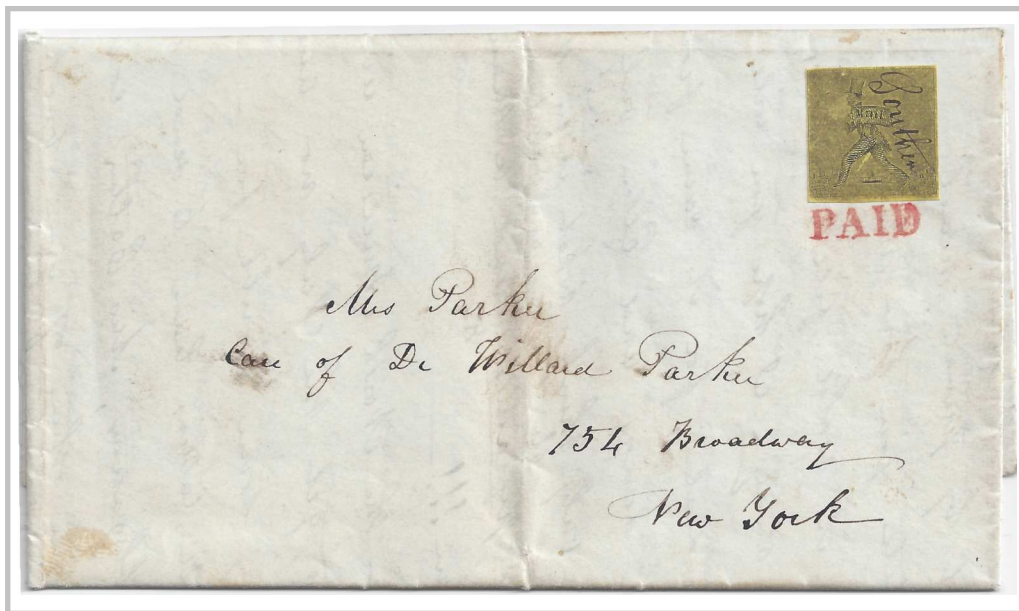 Southern
PAID
Mrs Parker
Care of Dr Willard Parker
754 Broadway
New York